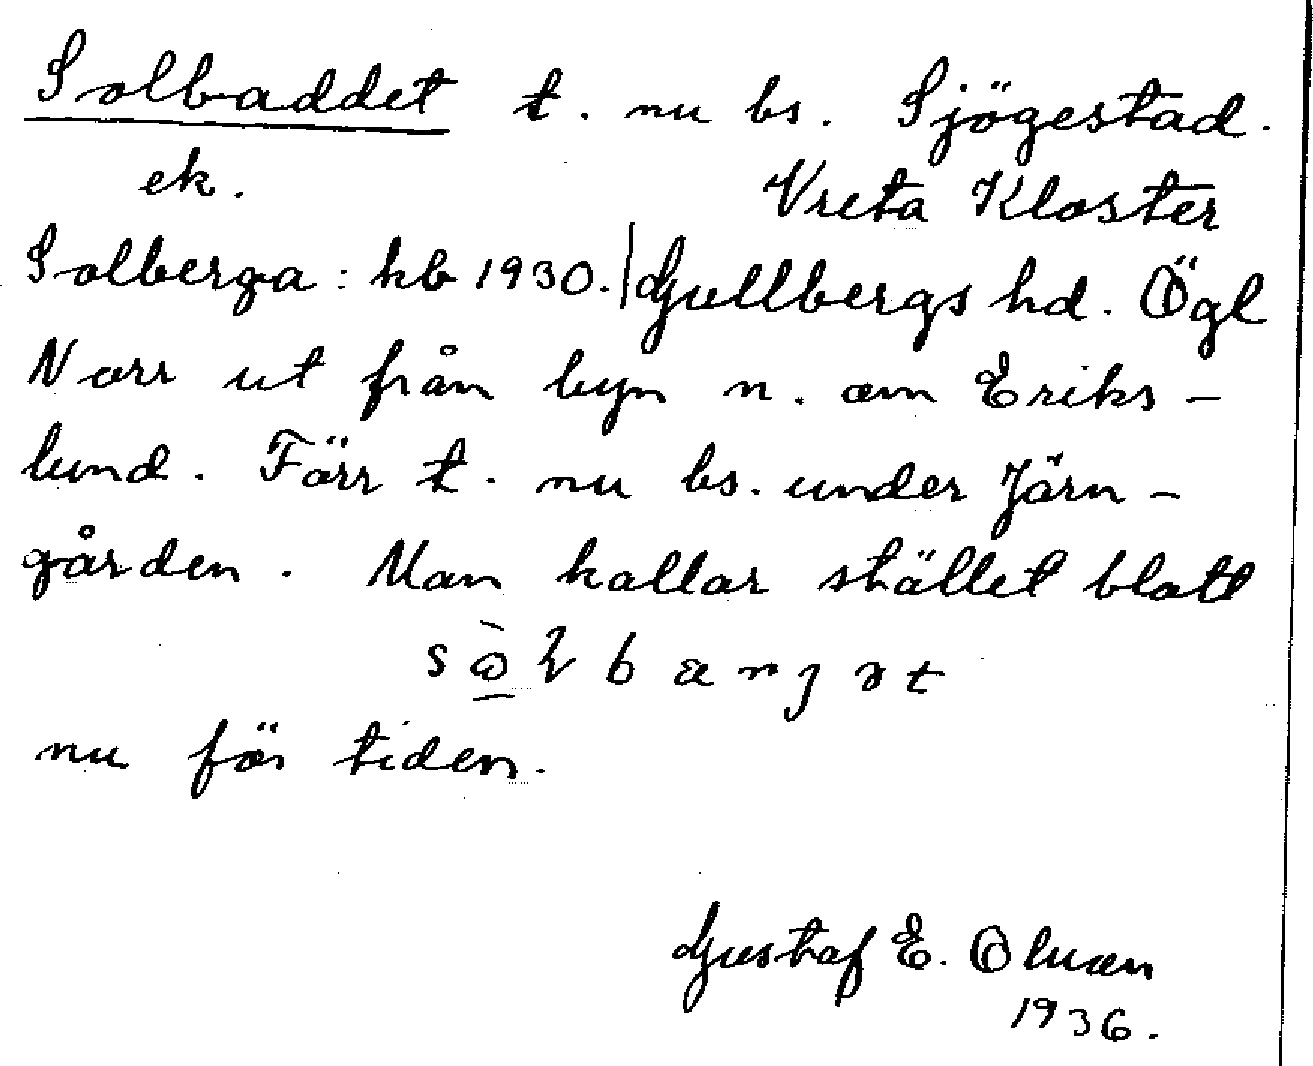 Solbaddet t. nu bs. Sjögestad.
ek. Vreta Kloster
Solberga : kb 1930. | Gullbergs hd. Ögl
Norr ut från byn n. om Eriks-
lund. Förr t. nu bs. under Järn-
gården. Man kallar stället blott
nu för tiden.
Gustaf E. Olson
1936.